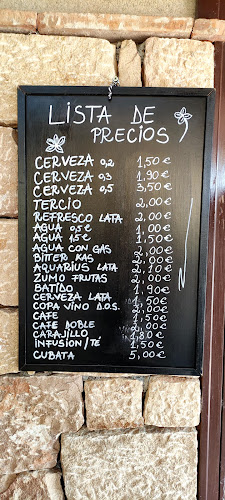 LISTA DE
PRECIOS
CERVEZA 0,2 1,50 €
CERVEZA 0,3 1,90 €
CERVEZA 0,5 3,50 €
TERCIO 2,00 €
REFRESCO LATA 2,00 €
AGUA 0,5 € 1,00 €
AGUA 1,5 € 1,50 €
AGUA CON GAS 2,00 €
BITTER KAS 2,00 €
AQUARIUS LATA 2,10 €
ZUMO FRUTAS 2,00 €
BATIDO 1,90 €
CERVEZA LATA
COPA VINO D.O.S.
CAFE
CAFE DOBLE
CARAJILLO
INFUSION/TÉ 1,50 €
CUBATA 5,00 €